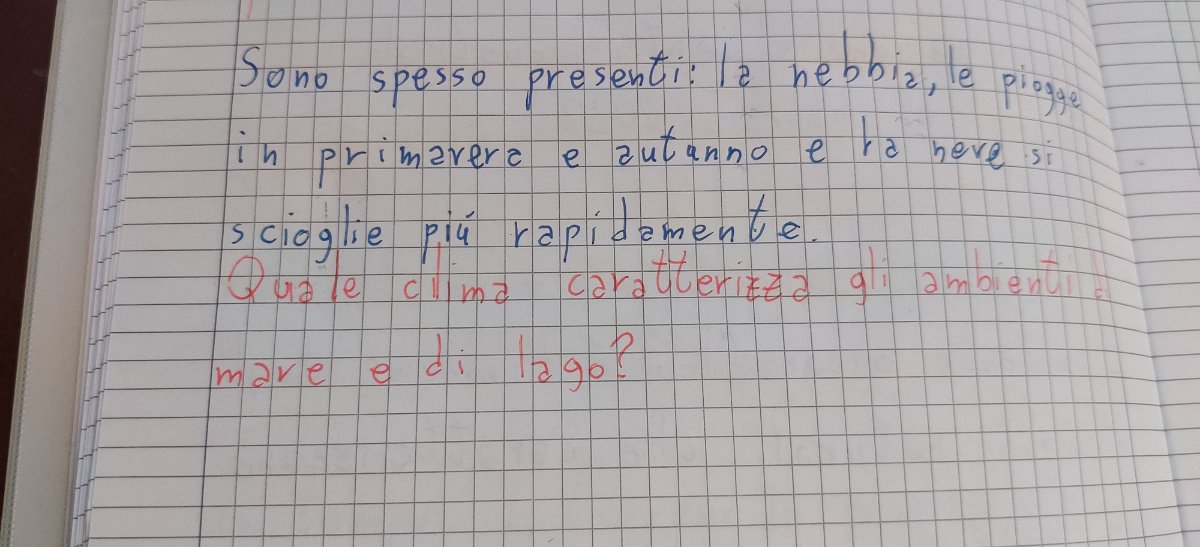 Sono spesso presenti: la nebbia, le piogge
in primavera e autanno e la neve si
scioglie piú rapidamente.
Quale clima caratterizza gli ambienti di
mare e di lago?